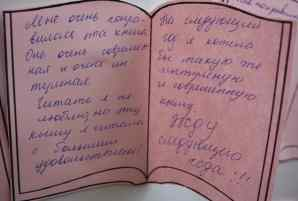 Мне очень понра-
вилась эта книга.
Она очень современ-
ная и очень ин
тересная.
Читать я не
люблю, но эту
книгу я читала
с большим
удовольствием!
На следующий
год я хотела
бы такую же
интересную
и современную
книгу.
Жду
следующего
года!!!